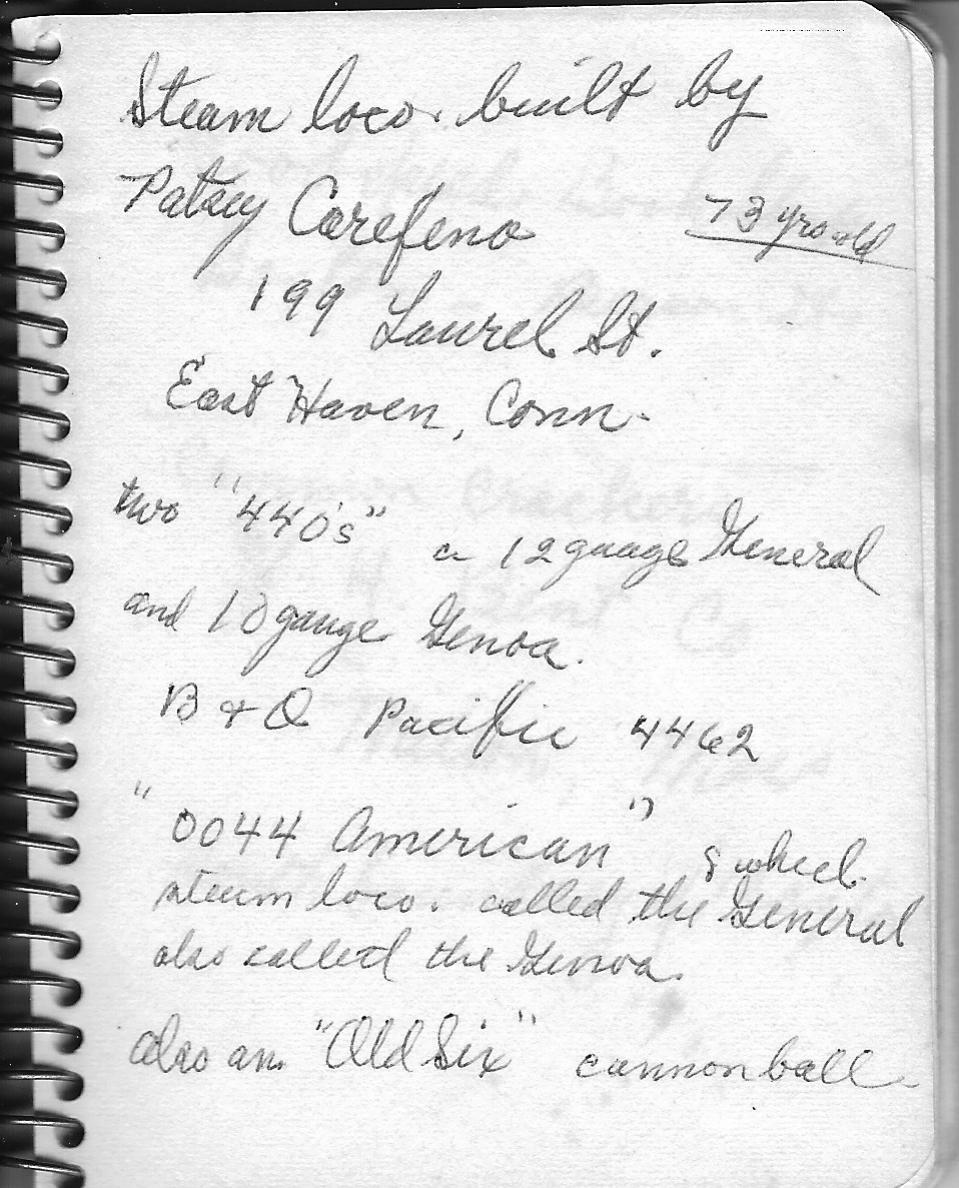 Steam loco. built by
Patsey Carefeno 73 yrs old
199 Laurel St.
East Haven, Conn.
two "440's" a 12 guage General
and 10 gauge Genoa.
B & O Pacific 4462
"0044 American" 8 wheel
steam loco. called the General
also called the Genoa.
also an "Old Six" cannonball